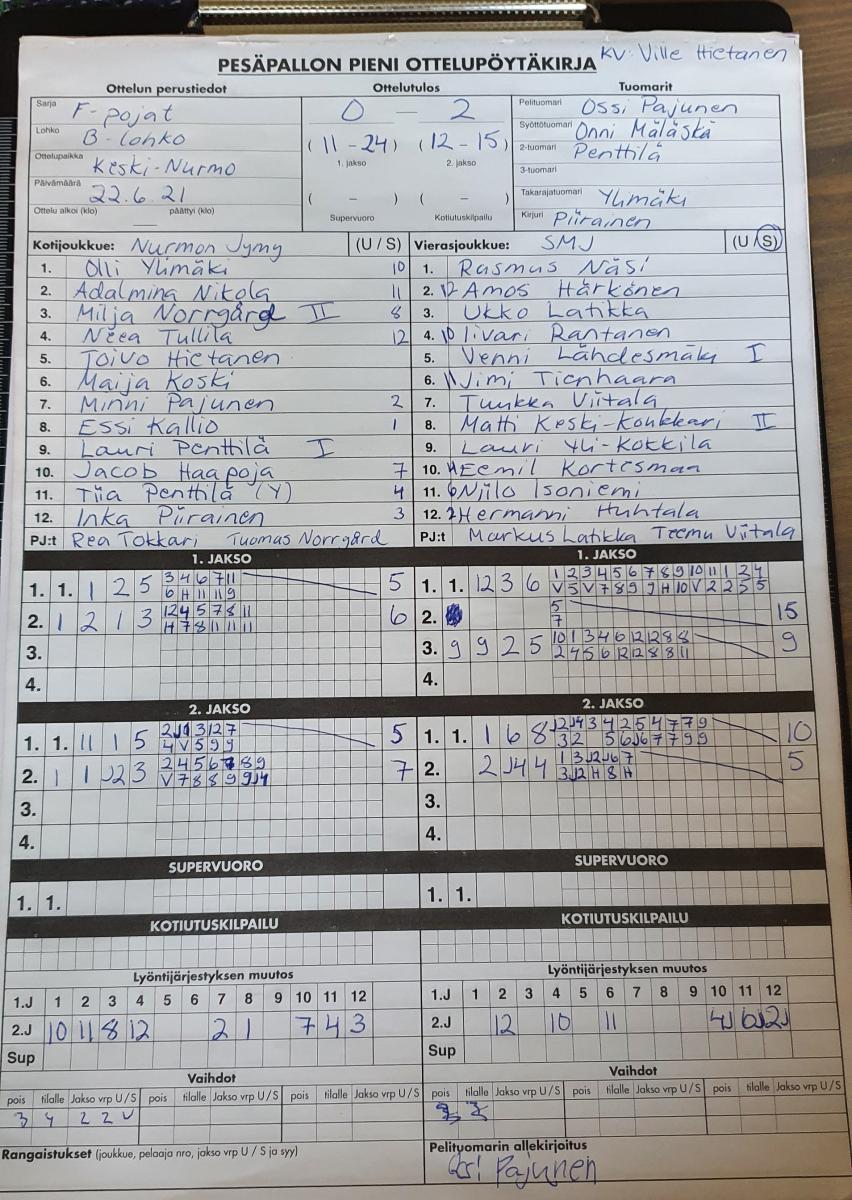 KV: Ville Hietanen
PESÄPALLON PIENI OTTELUPÖYTÄKIRJA
Ottelun perustiedot Ottelutulos Tuomarit
Sarja F-pojat
Lohko B-lohko
Ottelupaikka Keski-Nurmo
Päivämäärä 22.6.21
Ottelu alkoi (klo) päättyi (klo)
0 - 2
(11-24) (12-15)
1. jakso 2. jakso
( - ) ( - )
Supervuoro Kotiutuskilpailu
Pelituomari Ossi Pajunen
Syöttötuomari Onni Mäläskä
2-tuomari Penttilä
3-tuomari
Takarajatuomari Ylimäki
Kirjuri Piirainen
Kotijoukkue: Nurmon Jymy (U / S)
1. Olli Ylimäki 10
2. Adalmina Nikola 11
3. Milja Norrgård II 8
4. Neea Tullila 12
5. Toivo Hietanen
6. Maija Koski
7. Minni Pajunen 2
8. Essi Kallio 1
9. Lauri Penttilä I
10. Jacob Haapoja 7
11. Tiia Penttilä (Y) 4
12. Inka Piirainen 3
PJ:t Rea Tokkari Tuomas Norrgård
Vierasjoukkue: SMJ (U / S)
1. Rasmus Näsi
2. 12 Amos Härkönen
3. Ukko Latikka
4. 10 Iivari Rantanen
5. Venni Lähdesmäki I
6. 11 Jimi Tienhaara
7. Tuukka Viitala
8. Matti Keski-Koukkari II
9. Lauri Yli-Kokkila
10. 4 Eemil Kortesmaa
11. 6 Niilo Isoniemi
12. 2 Hermanni Huhtala
PJ:t Markus Latikka Teemu Viitala
1. JAKSO
1. 1. 1 2 5 3 4 6 7 11 5
6 H 11 11 9
2. 1 2 1 3 12 4 5 7 8 11 6
H 7 8 11 11 11
3.
4.
2. JAKSO
1. 1. 11 1 5 5
4 V 5 9 9
2. 1 1 J2 3 2 4 5 6 8 9 7
V 7 8 8 9 9 J4
3.
4.
SUPERVUORO
1. 1.
KOTIUTUSKILPAILU
1. JAKSO
1. 1. 12 3 6 1 2 3 4 5 6 7 8 9 10 11 1 3 4
V 5 V 7 8 9 9 H 10 V 2 2 3 5
2. 5 15
7
3. 9 9 2 5 10 1 3 4 6 12 12 8 8 9
2 4 5 6 12 12 8 8 11
4.
2. JAKSO
1. 1. 1 6 8 J2 J4 3 4 2 5 4 7 7 9 10
3 2 5 6 J6 7 7 9 9
2. 2 J4 4 1 3 J2 J6 7 5
3 J2 H 8 H
3.
4.
SUPERVUORO
1. 1.
KOTIUTUSKILPAILU
Lyöntijärjestyksen muutos
1.J 1 2 3 4 5 6 7 8 9 10 11 12
2.J 10 11 8 12 2 1 7 4 3
Sup
Lyöntijärjestyksen muutos
1.J 1 2 3 4 5 6 7 8 9 10 11 12
2.J 12 10 11 4J 6J 2J
Sup
Vaihdot
pois tilalle Jakso vrp U / S pois tilalle Jakso vrp U / S pois tilalle Jakso vrp U / S
3 4 2 2 U
Vaihdot
pois tilalle Jakso vrp U / S pois tilalle Jakso vrp U / S pois tilalle Jakso vrp U / S
Rangaistukset (joukkue, pelaaja nro, jakso vrp U / S ja syy)
Pelituomarin allekirjoitus
Ossi Pajunen